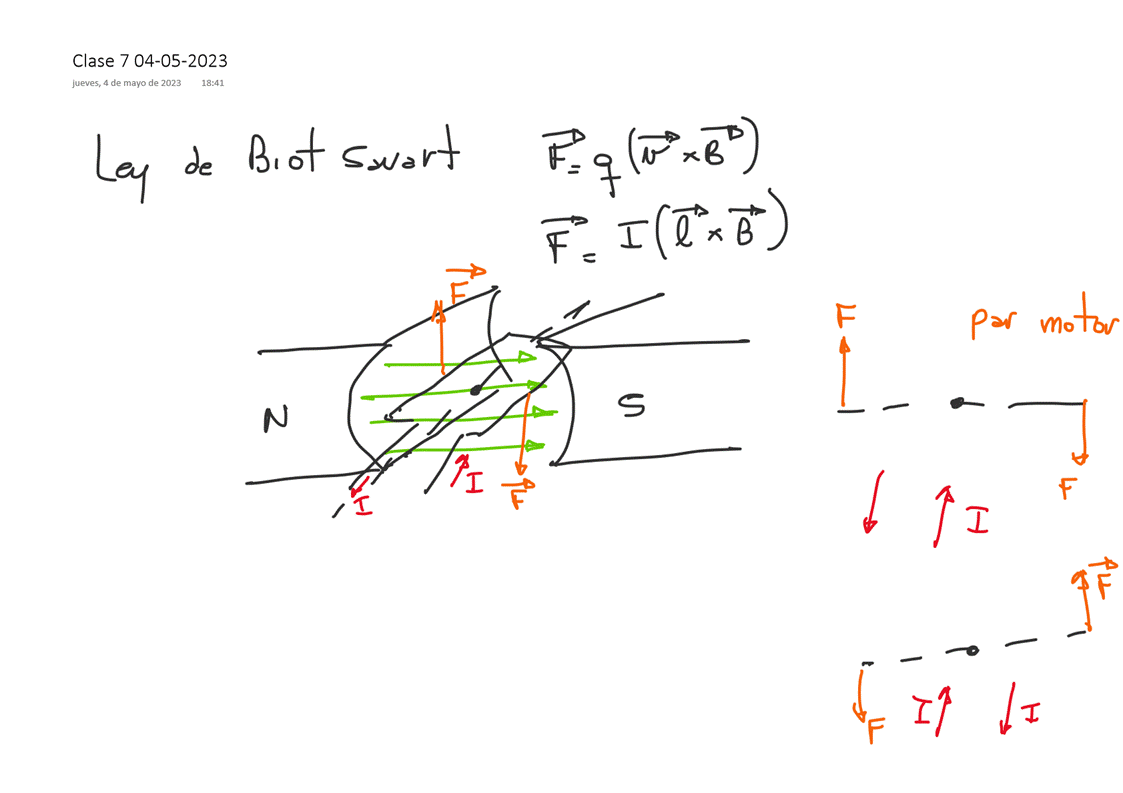 Clase 7 04-05-2023
jueves, 4 de mayo de 2023 18:41
Ley de Biot Swart
F⃗ = q (v⃗ × B⃗)
F⃗ = I (l⃗ × B⃗)
F⃗
F
par motor
N
S
I
I
F⃗
F
I
F⃗
F
I
I